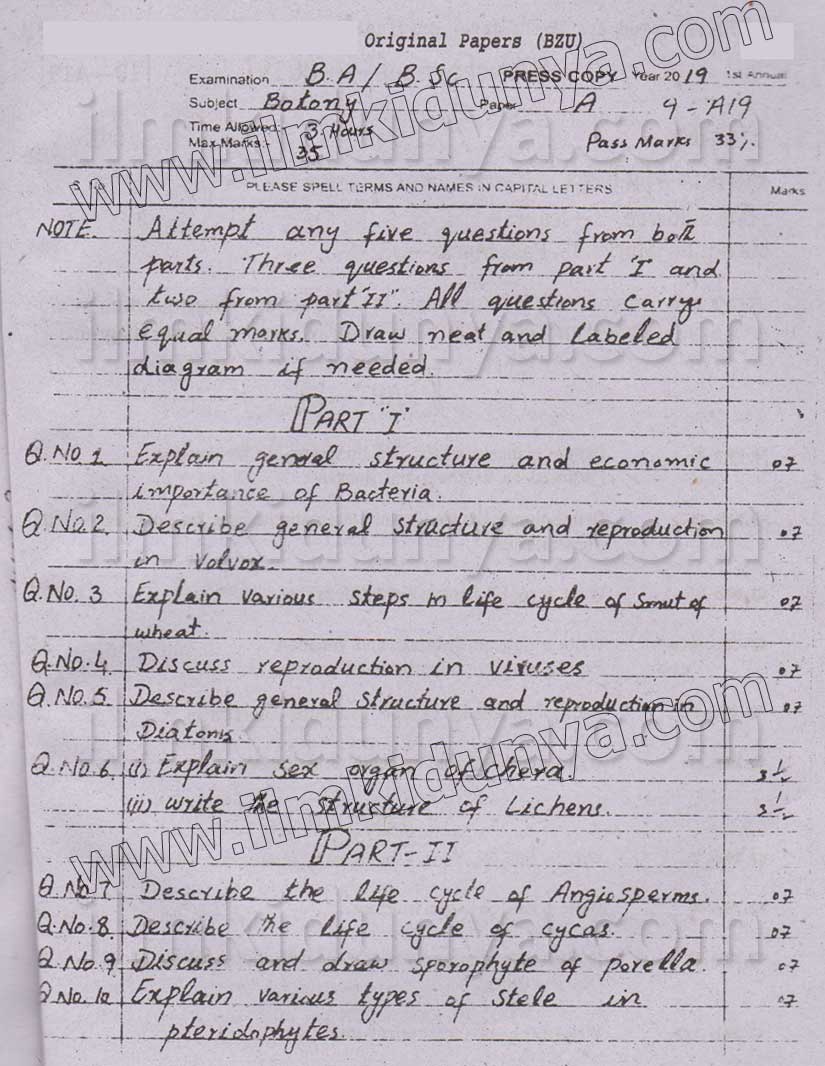 Original Papers (BZU)
Examination B.A / B.Sc PRESS COPY Year 2019 1st Annual
Subject Botony Paper A 4-A19
Time Allowed:- 3 Hours
Max Marks:- 35 Pass Marks 33%.
PLEASE SPELL TERMS AND NAMES IN CAPITAL LETTERS Marks
NOTE. Attempt any five questions from both
parts. Three questions from part "I and
two from part "II". All questions carry
equal marks. Draw neat and Labeled
diagram if needed.
PART "I"
Q.No.1 Explain general structure and economic 07
importance of Bacteria.
Q.No.2 Describe general structure and reproduction 07
in volvox.
Q.No.3 Explain various steps in life cycle of Smut of 07
wheat.
Q.No.4 Discuss reproduction in viruses 07
Q.No.5 Describe general structure and reproduction in 07
Diatoms
Q.No.6 (i) Explain sex organ of chera. 3 1/2
(ii) write the structure of Lichens. 3 1/2
PART-II
Q.No.7 Describe the life cycle of Angiosperms. 07
Q.No.8 Describe the life cycle of cycas. 07
Q.No.9 Discuss and draw sporophyte of porella. 07
Q.No.10 Explain various types of stele in 07
pteridophytes.
www.ilmkidunya.com
www.ilmkidunya.com
ilmkidunya.com
ilmkidunya.com
ilmkidunya.com
ilmkidunya.com
ilmkidunya.com